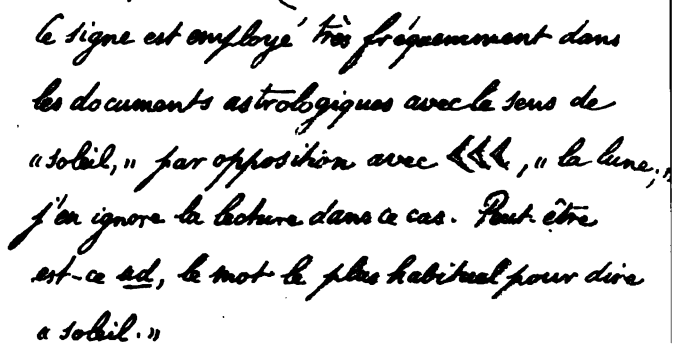 Ce signe est employé très fréquemment dans
les documents astrologiques avec le sens de
"soleil," par opposition avec 𒌍, "la lune;"
j'en ignore la lecture dans ce cas. Peut-être
est-ce ud, le mot le plus habituel pour dire
"soleil."